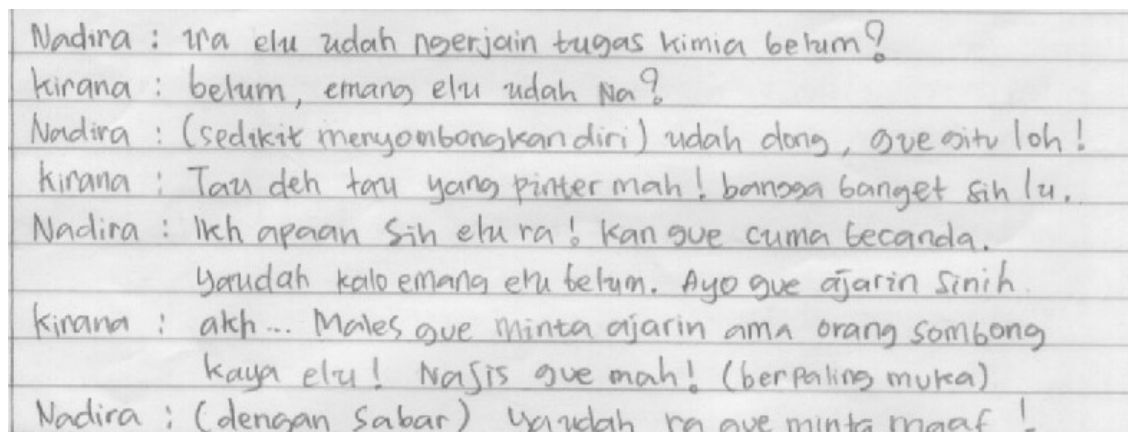 Nadira : ira elu udah ngerjain tugas kimia belum?
Kirana : belum, emang elu udah Na?
Nadira : (sedikit menyombongkan diri) udah dong, gue gitu loh!
Kirana : Tau deh tau yang pinter mah! bangga banget sih lu.
Nadira : Ikh apaan sih elu ra! Kan gue cuma becanda.
Yaudah kalo emang elu belum. Ayo gue ajarin sinih
Kirana : akh... Males gue minta ajarin ama orang sombong
kaya elu! Najis gue mah! (berpaling muka)
Nadira : (dengan sabar) Yaudah ra gue minta maaf !